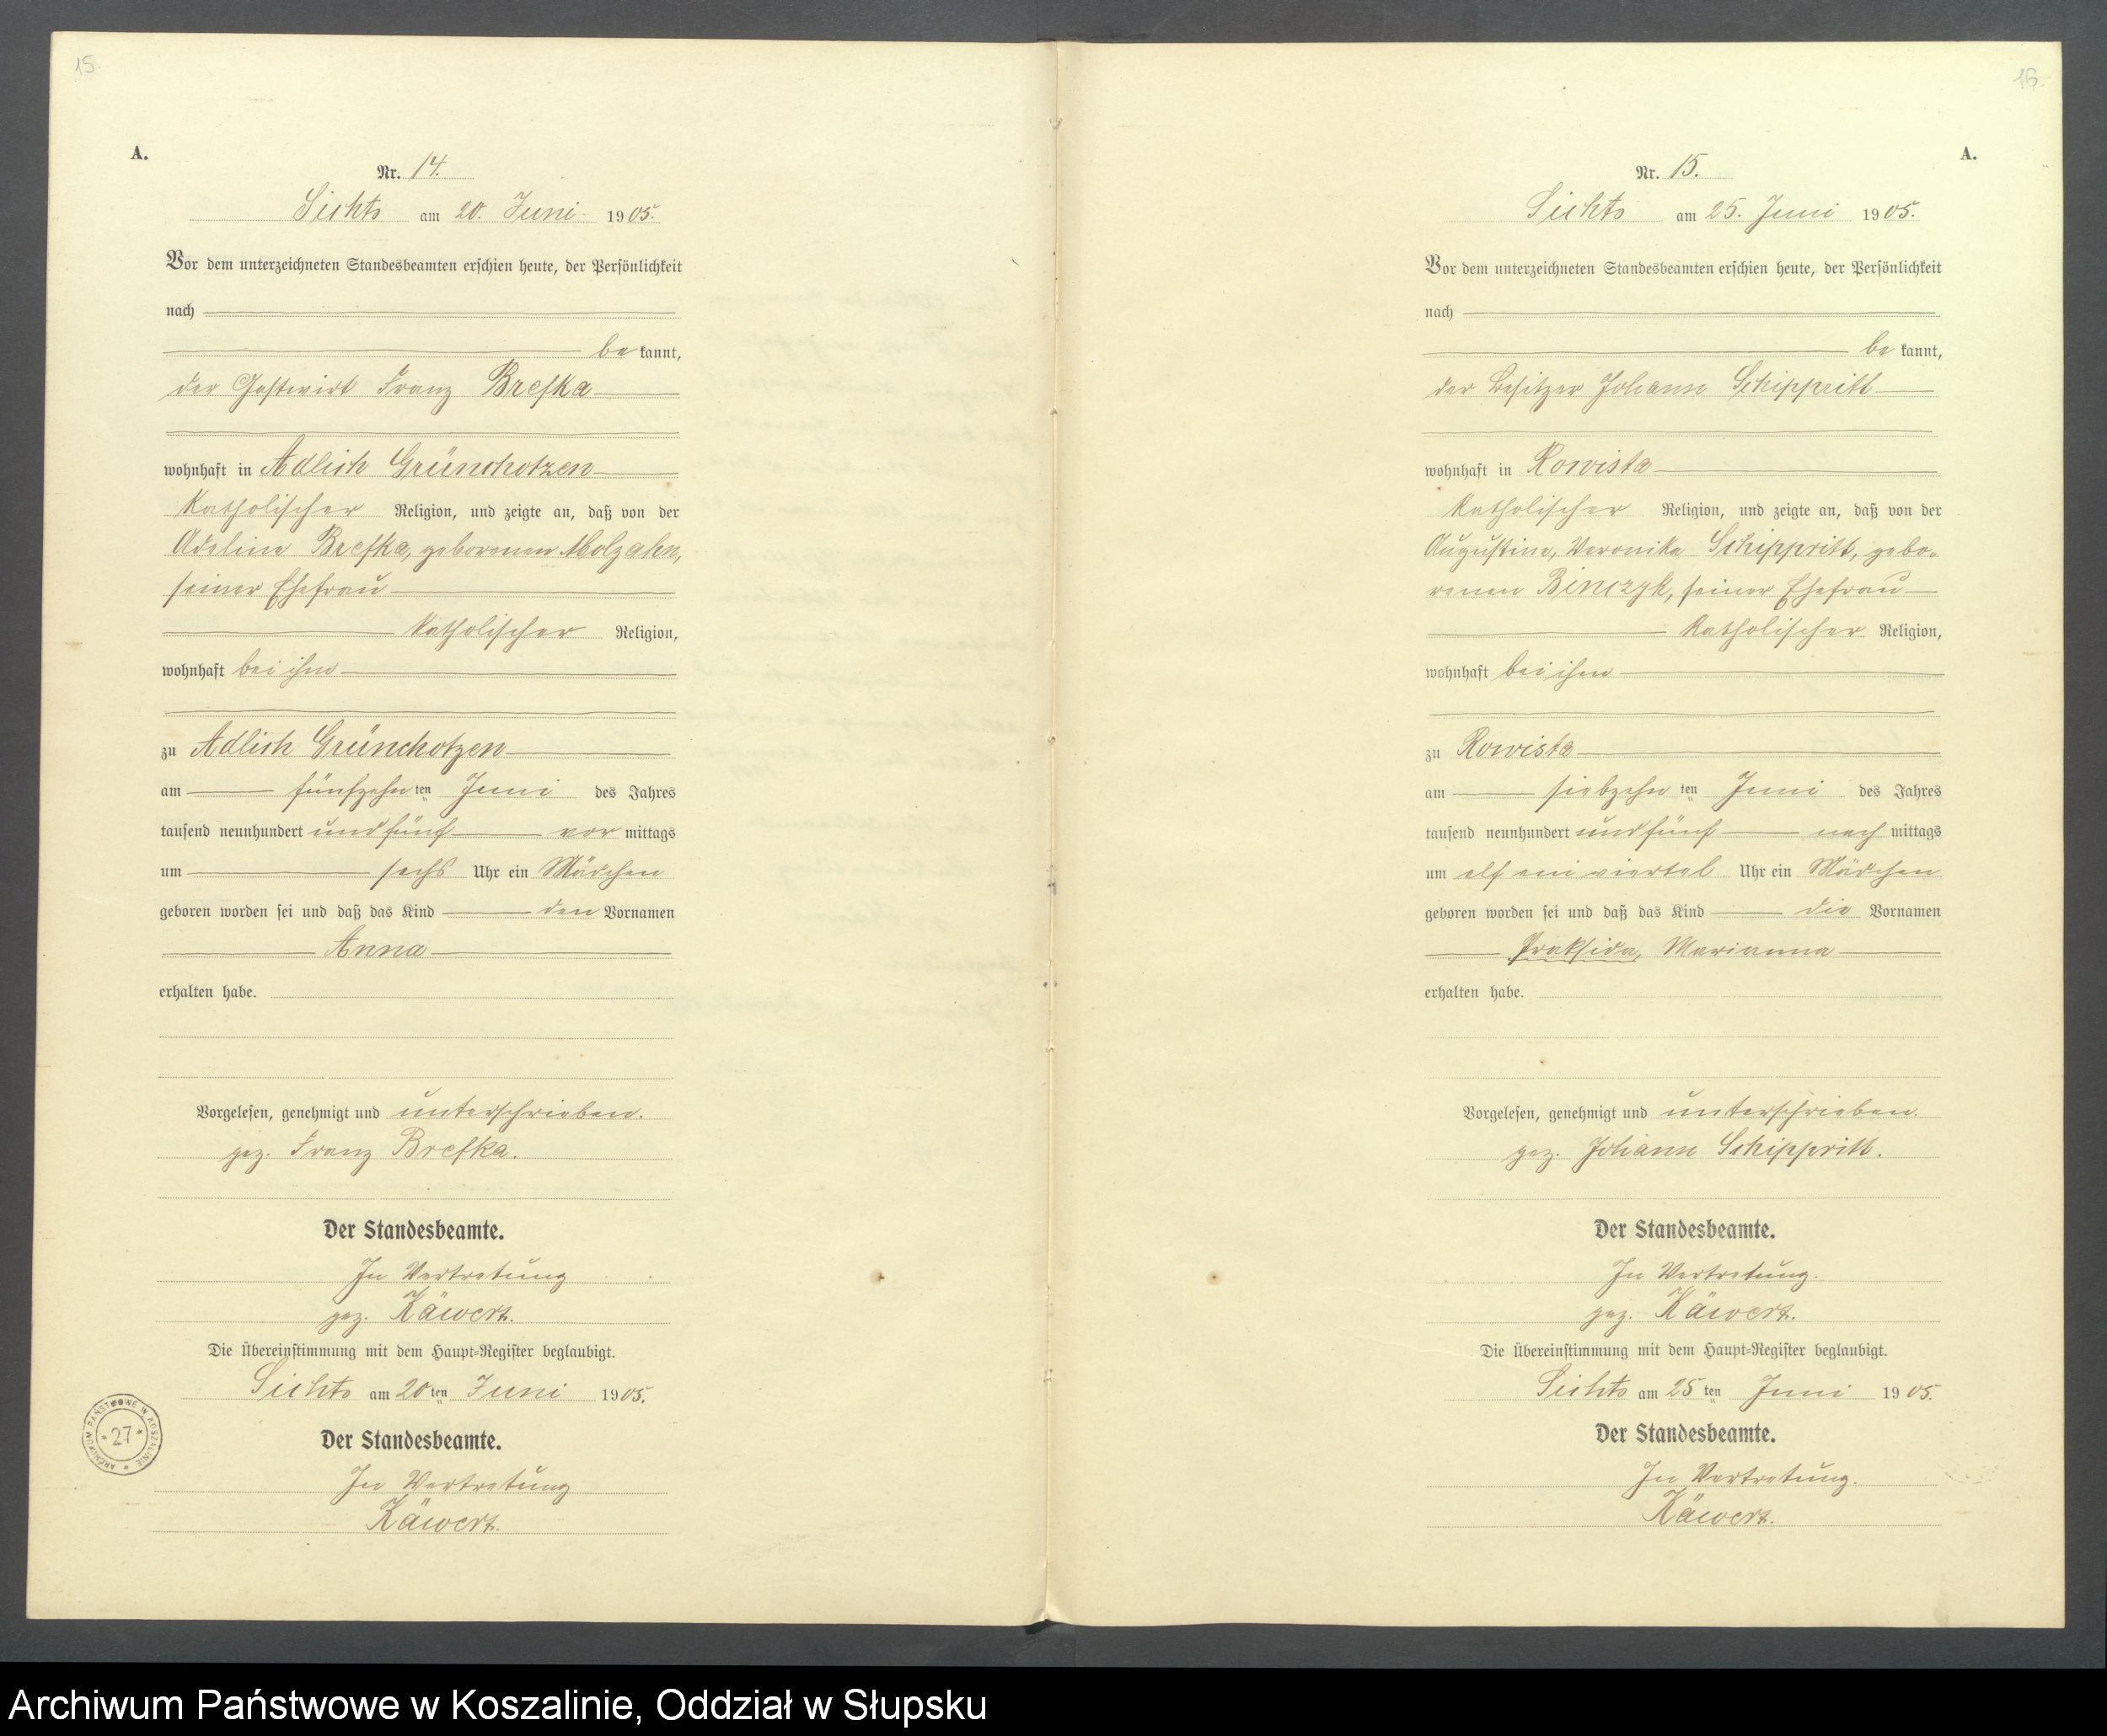 15.
A.
Nr. 14.
Lichts am 20. Juni 1905.
Vor dem unterzeichneten Standesbeamten erschien heute, der Persönlichkeit
nach
be kannt,
der Gastwirt Franz Brefka
wohnhaft in Adlich Grünchotzen
katholischer Religion, und zeigte an, daß von der
Adeline Brefka, geborenen Molzahn,
seiner Ehefrau
katholischer Religion,
wohnhaft bei ihm
zu Adlich Grünchotzen
am fünfzehn ten Juni des Jahres
tausend neunhundert und fünf vor mittags
um sechs Uhr ein Mädchen
geboren worden sei und daß das Kind den Vornamen
Anna
erhalten habe.
Vorgelesen, genehmigt und unterschrieben.
gez. Franz Brefka.
Der Standesbeamte.
In Vertretung
gez. Käwert.
Die Übereinstimmung mit dem Haupt-Register beglaubigt.
Lichts am 20 ten Juni 1905.
Der Standesbeamte.
In Vertretung
Käwert.
ARCHIWUM PAŃSTWOWE W KOSZALINIE
* 27 *
16.
A.
Nr. 15.
Lichts am 25. Juni 1905.
Vor dem unterzeichneten Standesbeamten erschien heute, der Persönlichkeit
nach
be kannt,
der Besitzer Johann Schippritt
wohnhaft in Rowista
katholischer Religion, und zeigte an, daß von der
Augustine, Veronika Schippritt, gebo-
renen Binczyk, seiner Ehefrau
katholischer Religion,
wohnhaft bei ihm
zu Rowista
am siebzehn ten Juni des Jahres
tausend neunhundert und fünf nach mittags
um elf ein viertel Uhr ein Mädchen
geboren worden sei und daß das Kind die Vornamen
Praksida, Marianna
erhalten habe.
Vorgelesen, genehmigt und unterschrieben.
gez. Johann Schippritt.
Der Standesbeamte.
In Vertretung.
gez. Käwert.
Die Übereinstimmung mit dem Haupt-Register beglaubigt.
Lichts am 25 ten Juni 1905.
Der Standesbeamte.
In Vertretung.
Käwert.
Archiwum Państwowe w Koszalinie, Oddział w Słupsku